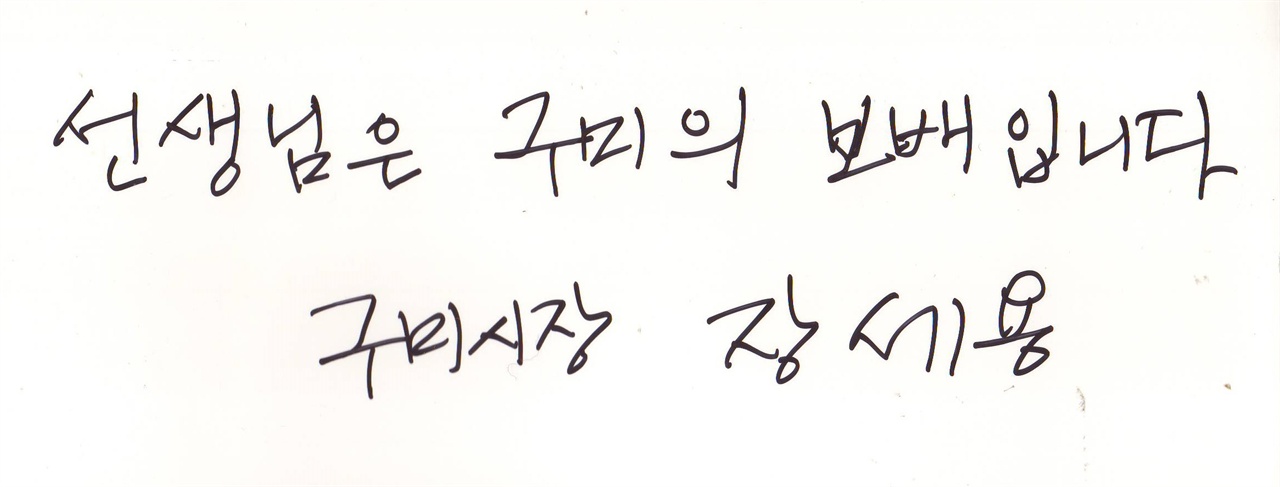 선생님은 구미의 보배입니다
구미시장 장세용